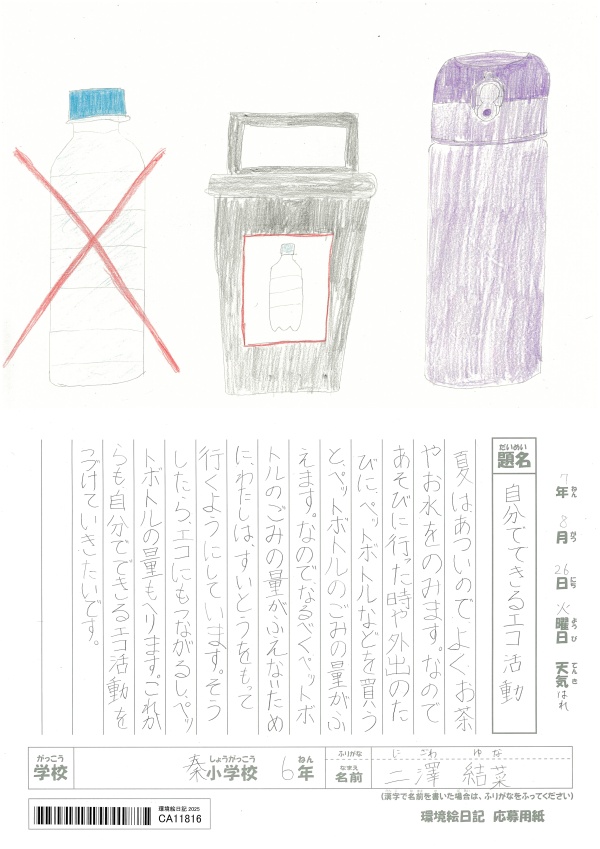 7年 8月 26日 火曜日 天気 はれ
ねん がつ にち ようび てんき
だいめい
題名
自分でできるエコ活動
夏はあついのでよくお茶
やお水をのみます。なので
あそびに行った時や外出のた
びに、ペットボトルなどを買う
と、ペットボトルのごみの量がふ
えます。なので、なるべくペットボ
トルのごみの量がふえないため
に、わたしは、すいとうをもって
行くようにしています。そう
したら、エコにもつながるし、ペッ
トボトルの量もへります。これか
らも自分でできるエコ活動を
つづけていきたいです。
がっこう
学校
秦
しょうがっこう
小学校
6年
ねん
ふりがな
にごわ ゆな
なまえ
名前
二澤 結菜
(漢字で名前を書いた場合は、ふりがなをふってください)
環境絵日記 2025
CA11816
環境絵日記 応募用紙